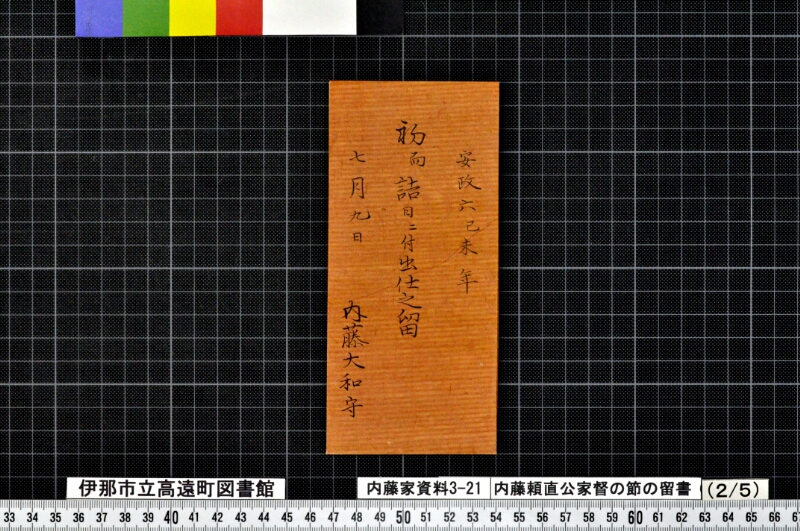 安政六己未年
初而詰日ニ付出仕之留
七月九日
内藤大和守
伊那市立高遠町図書館
内藤家資料3-21
内藤頼直公家督の節の留書
(2/5)
33 34 35 36 37 38 39 40 41 42 43 44 45 46 47 48 49 50 51 52 53 54 55 56 57 58 59 60 61 62 63 64 65 66 67